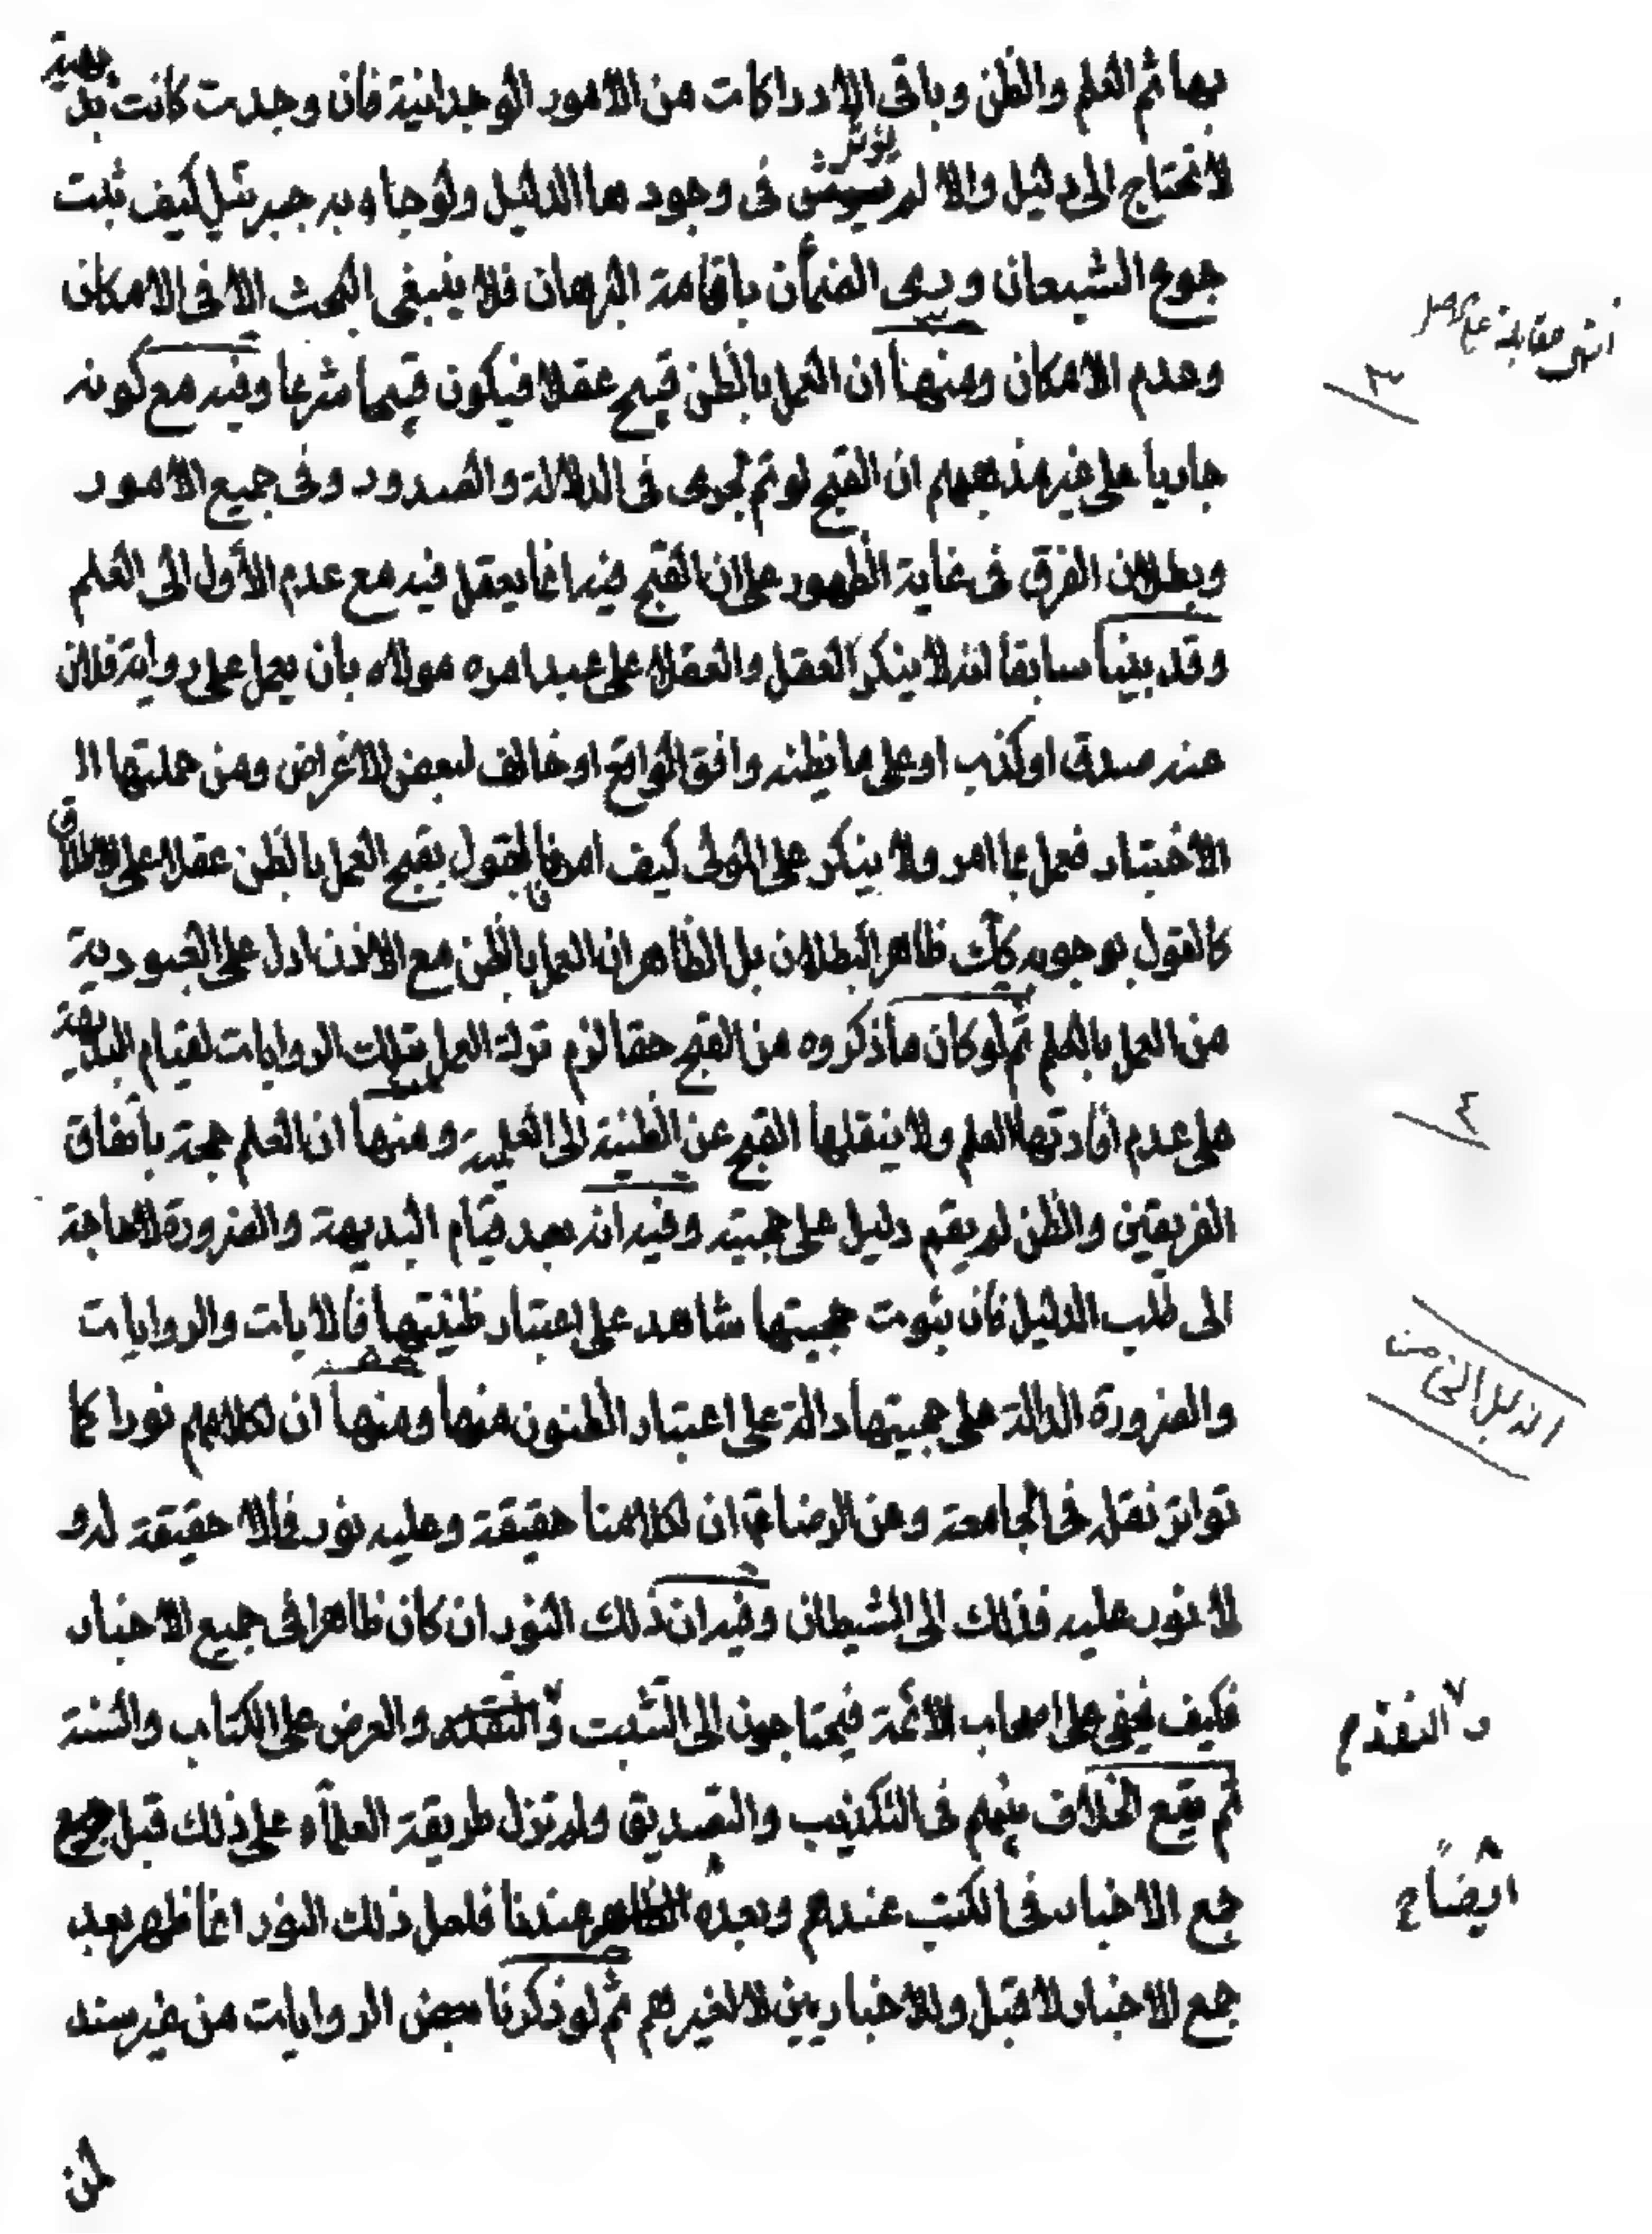 بها ثم العلم والظن وباقى الادراكات من الامور الوجدانية فان وجدت كانت بديهية
لا تحتاج الى دليل والا لم يؤثر فى وجودها الدليل ولو جاء به جبرئيل كيف يثبت
جوع الشبعان وري الضمأن باقامة البرهان فلا ينبغى البحث الا فى الامكان
وعدم الامكان ومنها ان العمل بالظن قبيح عقلا فيكون قبيحا شرعا وفيه مع كونه
جاريا على غير مذهبهم ان القبح لو تم لجرى فى الدلالة والصدور وفى جميع الامور
وبطلان الفرق فى غاية الظهور على ان القبح فيه انما يعقل فيه مع عدم الأول الى العلم
وقد بينا سابقا انه لا ينكر العقل والعقلا على عبد امره مولاه بان يعمل على رواية فلان
عنه صدق او كذب او على ما يظنه وافق الواقع او خالف لبعض الاغراض ومن جملتها ا
الاختبار فعمل بما امر ولا ينكر على المولى كيف امر فالقول بقبح العمل بالظن عقلا على الاطلاق
كالقول بوجوبه كك ظاهر البطلان بل الظاهر ان العمل بالظن مع الاذن ادل على العبودية
من العمل بالعلم ثم لو كان ما ذكروه من القبح حقا لزم ترك العمل بتلك الروايات لقيام البديهة
على عدم افادتها العلم ولا ينقلها القبح عن الظنية الى العلمية ومنها ان العلم حجة باتفاق
الفريقين والظن لم يقم دليل على حجيته وفيه انه بعد قيام البديهة والضرورة لا حاجة
الى طلب الدليل فان ثبوت حجيتها شاهد على اعتبار ظنيتها فالايات والروايات
والضرورة الدالة على حجيتها دالة على اعتبار الظنون منها ومنها ان لكلامهم نورا كما
تواتر نقله فى الجامعة وعن الرضا ان لكلامنا حقيقة وعليه نور فما لا حقيقة له و
لا نور عليه فذلك الى الشيطان وفيه ان ذلك النور ان كان ظاهرا فى جميع الاخبار
فكيف يخفى على اصحاب الائمة فيحتاجون الى التثبت والنقد والعرض على الكتاب والسنة
ثم يقع الخلاف بينهم فى التكذيب والتصديق ولم تزل طريقة العلماء على ذلك قبل
جمع الاخبار فى الكتب عندهم وبعده عندنا فلعل ذلك النور انما ظهر بعد
جمع الاخبار لا قبل وللاخباريين لا لغيرهم ثم لو ذكرنا بعض الروايات من غير سند
لمن
٣
٤